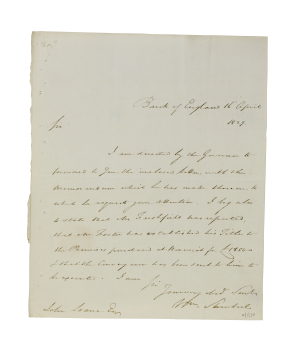 Bank of England 16 April
1829
Sir
I am directed by the Governor to
forward to you the enclosed letter, with the
Memorandum which he has made thereon, to
which he requests your attention. I beg also
to state that Mr Freshfield has reported
that Mr Foster has established his Title to
the Premises purchased at Norwich for
that the Conveyance has been sent to him to
be executed. I am
Sir
Your very obed Servt
John Soane Esq